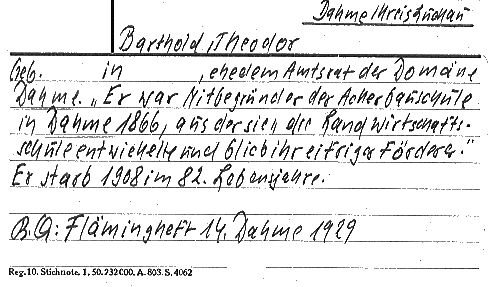 Dahme Kreis Luckau
Barthold, Theodor
Geb. in , ehedem Amtsrat der Domäne
Dahme. „Er war Mitbegründer der Ackerbauschule
in Dahme 1866, aus der sie„ die Landwirtschafts-
schule entwickelte und blieb ihr eifriger Förderer."
Er starb 1908 im 82. Lebensjahre.
B.Q: Flämingheft 14. Dahme 1929
Reg. 10. Stichnote. 1. 50. 232000. A. 803. S. 4062